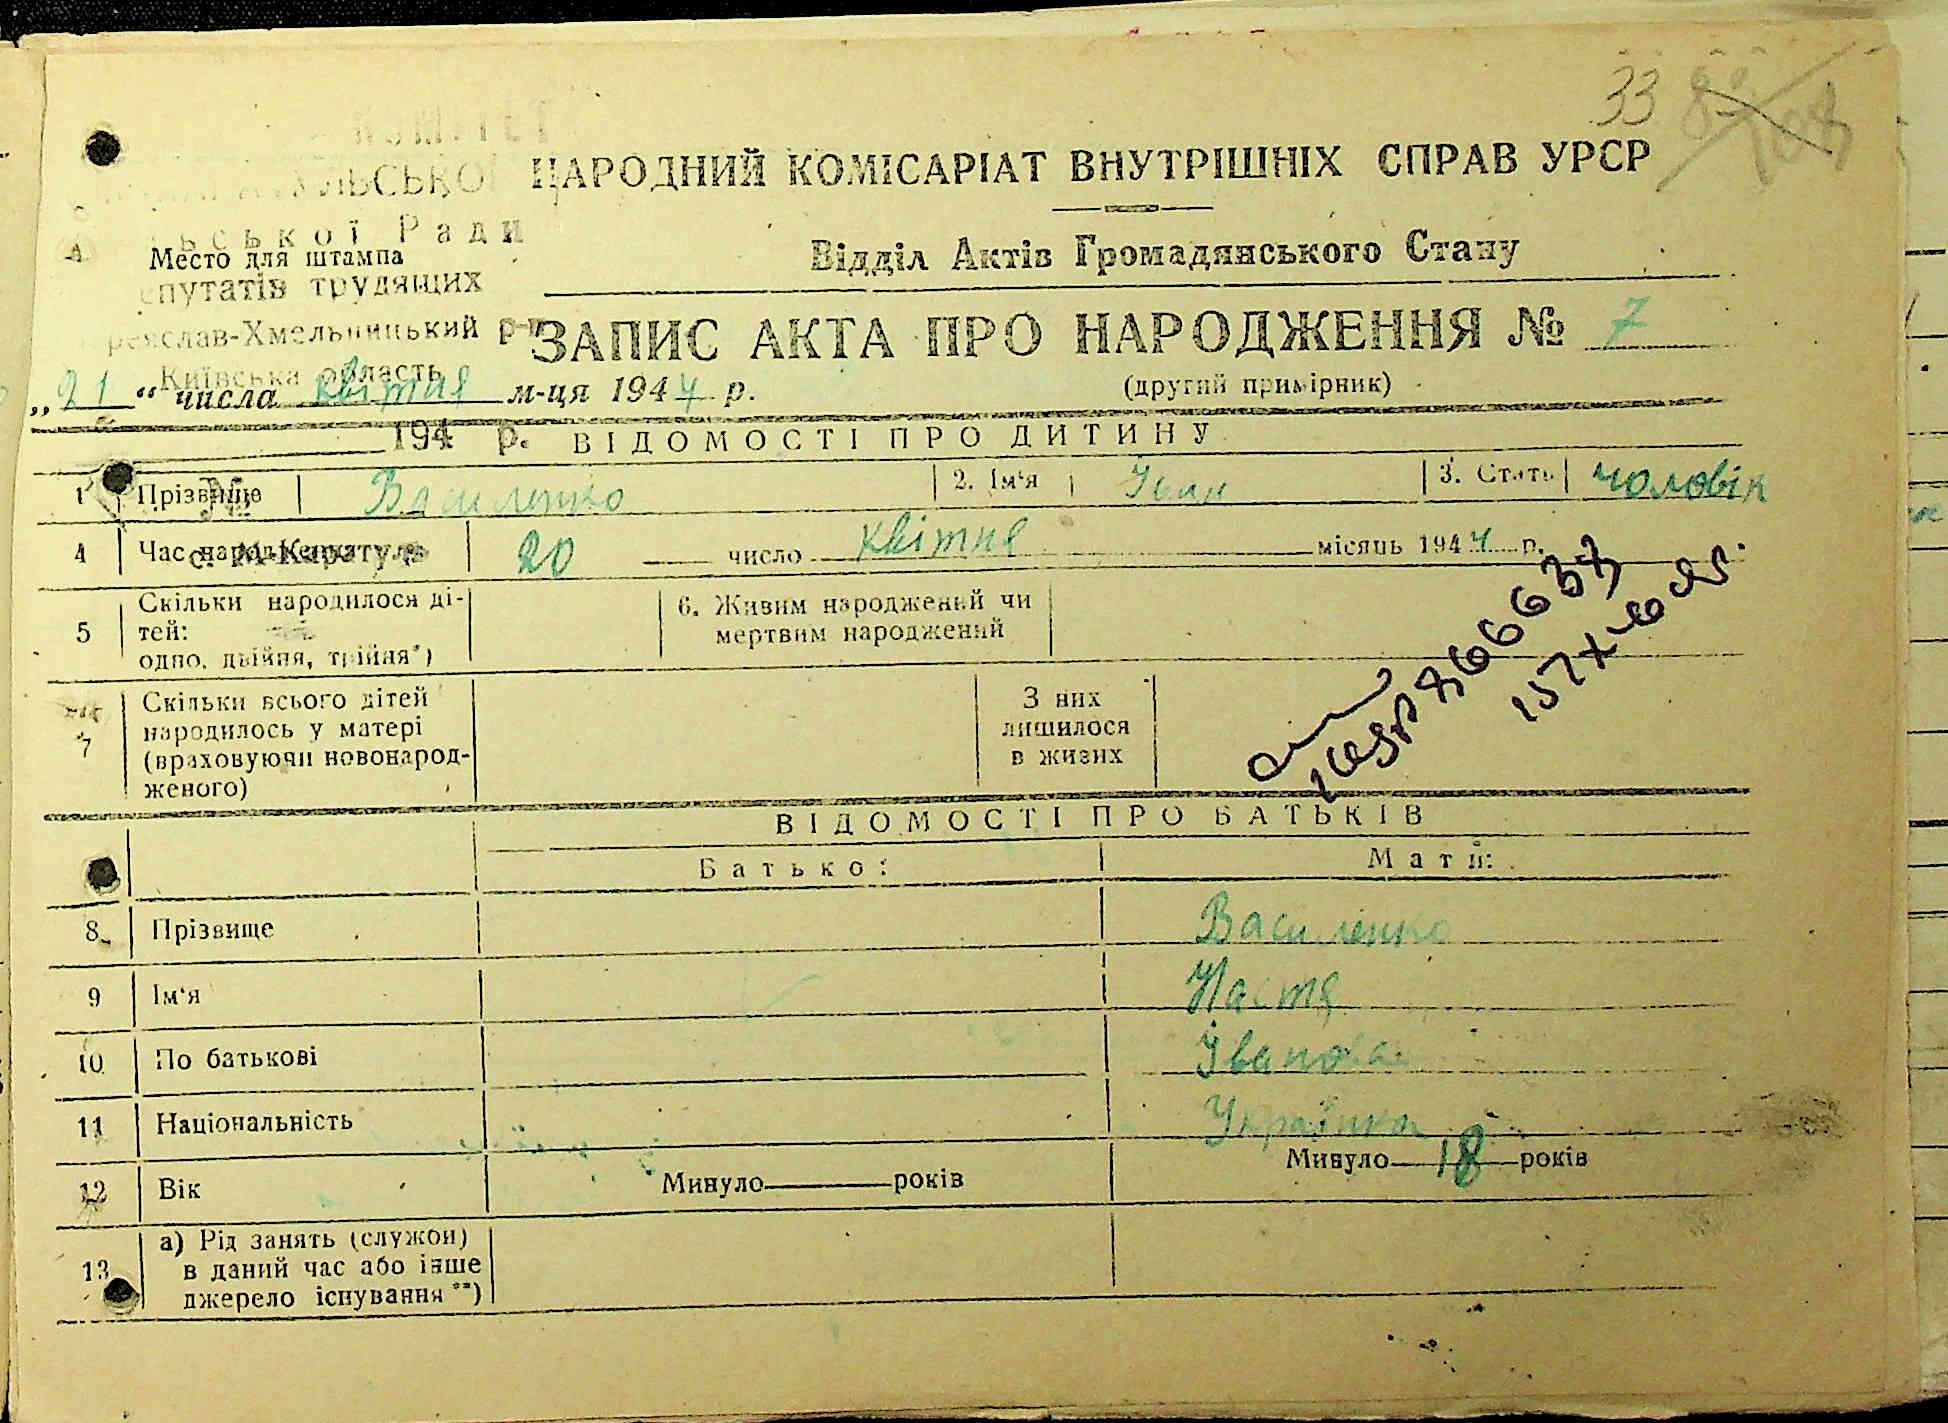 33
НАРОДНИЙ КОМІСАРІАТ ВНУТРІШНІХ СПРАВ УРСР
Ради
Место для штампа
Відділ Актів Громадянського Стану
трудящих
ЗАПИС АКТА ПРО НАРОДЖЕННЯ № 7
Київська область
„21“ числа квітня м-ця 1944 р.
(другий примірник)
194 р.
ВІДОМОСТІ ПРО ДИТИНУ
1 Прізвище Василенко 2. Ім'я Іван 3. Стать чоловік
4 Час народ 20 число квітня місяць 1944 р.
5 Скільки народилося ді-
тей:
одно, двійня, трійня*)
6. Живим народжений чи
мертвим народжений
7 Скільки всього дітей
народилось у матері
(враховуючи новонарод-
женого)
З них
лишилося
в живих
ВІДОМОСТІ ПРО БАТЬКІВ
Батько: Мати:
8 Прізвище Василенко
9 Ім'я Настя
10 По батькові Іванова
11 Національність Українка
12 Вік Минуло років Минуло 18 років
13 а) Рід занять (служби)
в даний час або інше
джерело існування **)